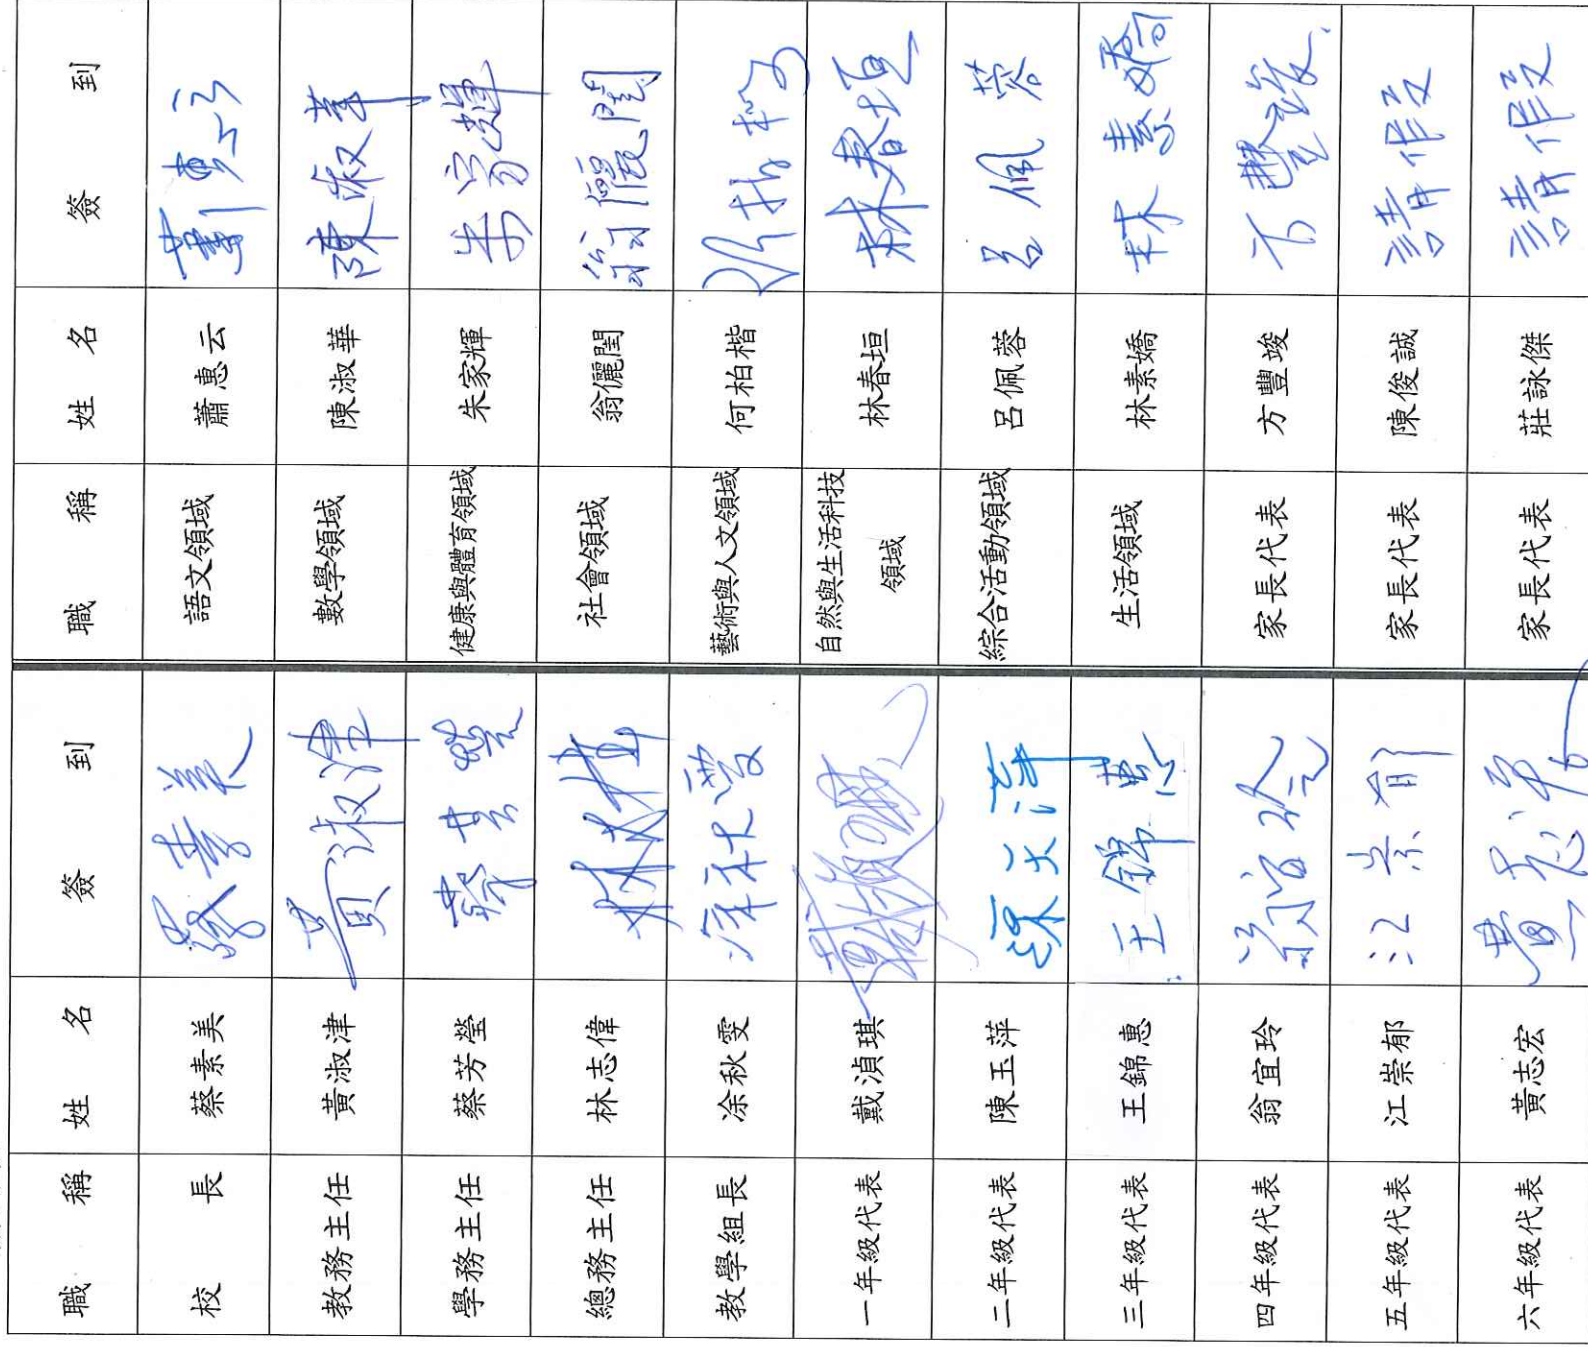 職 稱 姓 名 簽 到 職 稱 姓 名 簽 到
校 長 蔡素美 蔡素美 語文領域 蕭惠云 蕭惠云
教務主任 黃淑津 黃淑津 數學領域 陳淑華 陳淑華
學務主任 蔡芳瑩 蔡芳瑩 健康與體育領域 朱家輝 朱家輝
總務主任 林志偉 社會領域 翁儷閨 翁儷閨
教學組長 凃秋雯 凃秋雯 藝術與人文領域 何柏楷
一年級代表 戴湞琪 自然與生活科技 林春垣 林春垣
領域
二年級代表 陳玉萍 陳玉萍 綜合活動領域 呂佩蓉 呂佩蓉
三年級代表 王錦惠 王錦惠 生活領域 林素嬌 林素嬌
四年級代表 翁宜玲 翁宜玲 家長代表 方豐竣 方豐竣
五年級代表 江崇郁 江崇郁 家長代表 陳俊誠 請假
六年級代表 黃志宏 黃志宏 家長代表 莊詠傑 請假